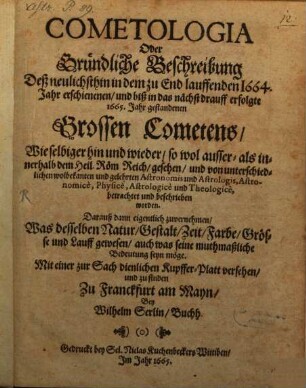 COMETOLOGIA
Oder
Gründliche Beschreibung
Deß neulichsthin in dem zu End lauffenden 1664.
Jahr erschienenen/ und biß in das nächst drauff erfolgte
1665. Jahr gestandenen
Grossen Cometens/
Wie selbiger hin und wieder/ so wol ausser/ als in-
nerhalb dem Heil. Röm Reich/ gesehen/ und von unterschied-
lichen wolbekanten und gelehrten Astronomis und Astrologis, Astro-
nomicè, Physicè, Astrologicè und Theologicè,
betrachtet und beschrieben
worden.
Darauß dann eigentlich zuvernehmen/
Was desselben Natur/ Gestalt/ Zeit/ Farbe/ Größ-
se und Lauff gewesen/ auch was seine muthmaßliche
Bedeutung seyn möge.
Mit einer zur Sach dienlichen Kupffer-Platt versehen/
und zu finden
Zu Franckfurt am Mayn/
Bey
Wilhelm Serlin/ Buchh.
Gedruckt bey Sel. Niclas Kuchenbeckers Wittiben/
Im Jahr 1665.